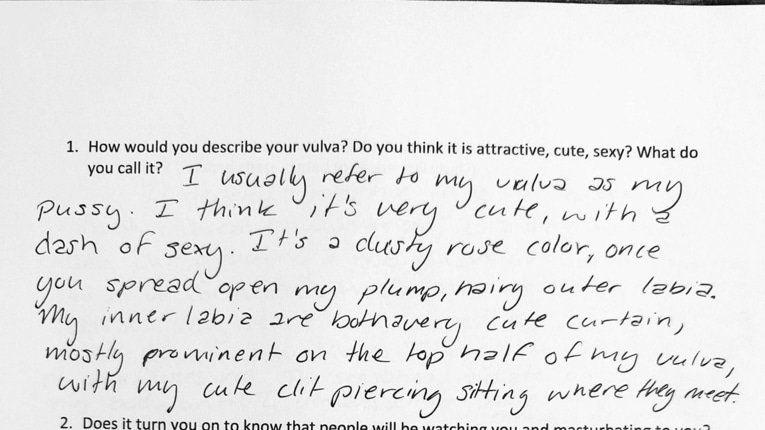 1. How would you describe your vulva? Do you think it is attractive, cute, sexy? What do
you call it? I usually refer to my vulva as my
pussy. I think it's very cute, with a
dash of sexy. It's a dusty rose color, once
you spread open my plump, hairy outer labia.
My inner labia are both a very cute curtain,
mostly prominent on the top half of my vulva,
with my cute clit piercing sitting where they meet.
2. Does it turn you on to know that people will be watching you and masturbating to you?